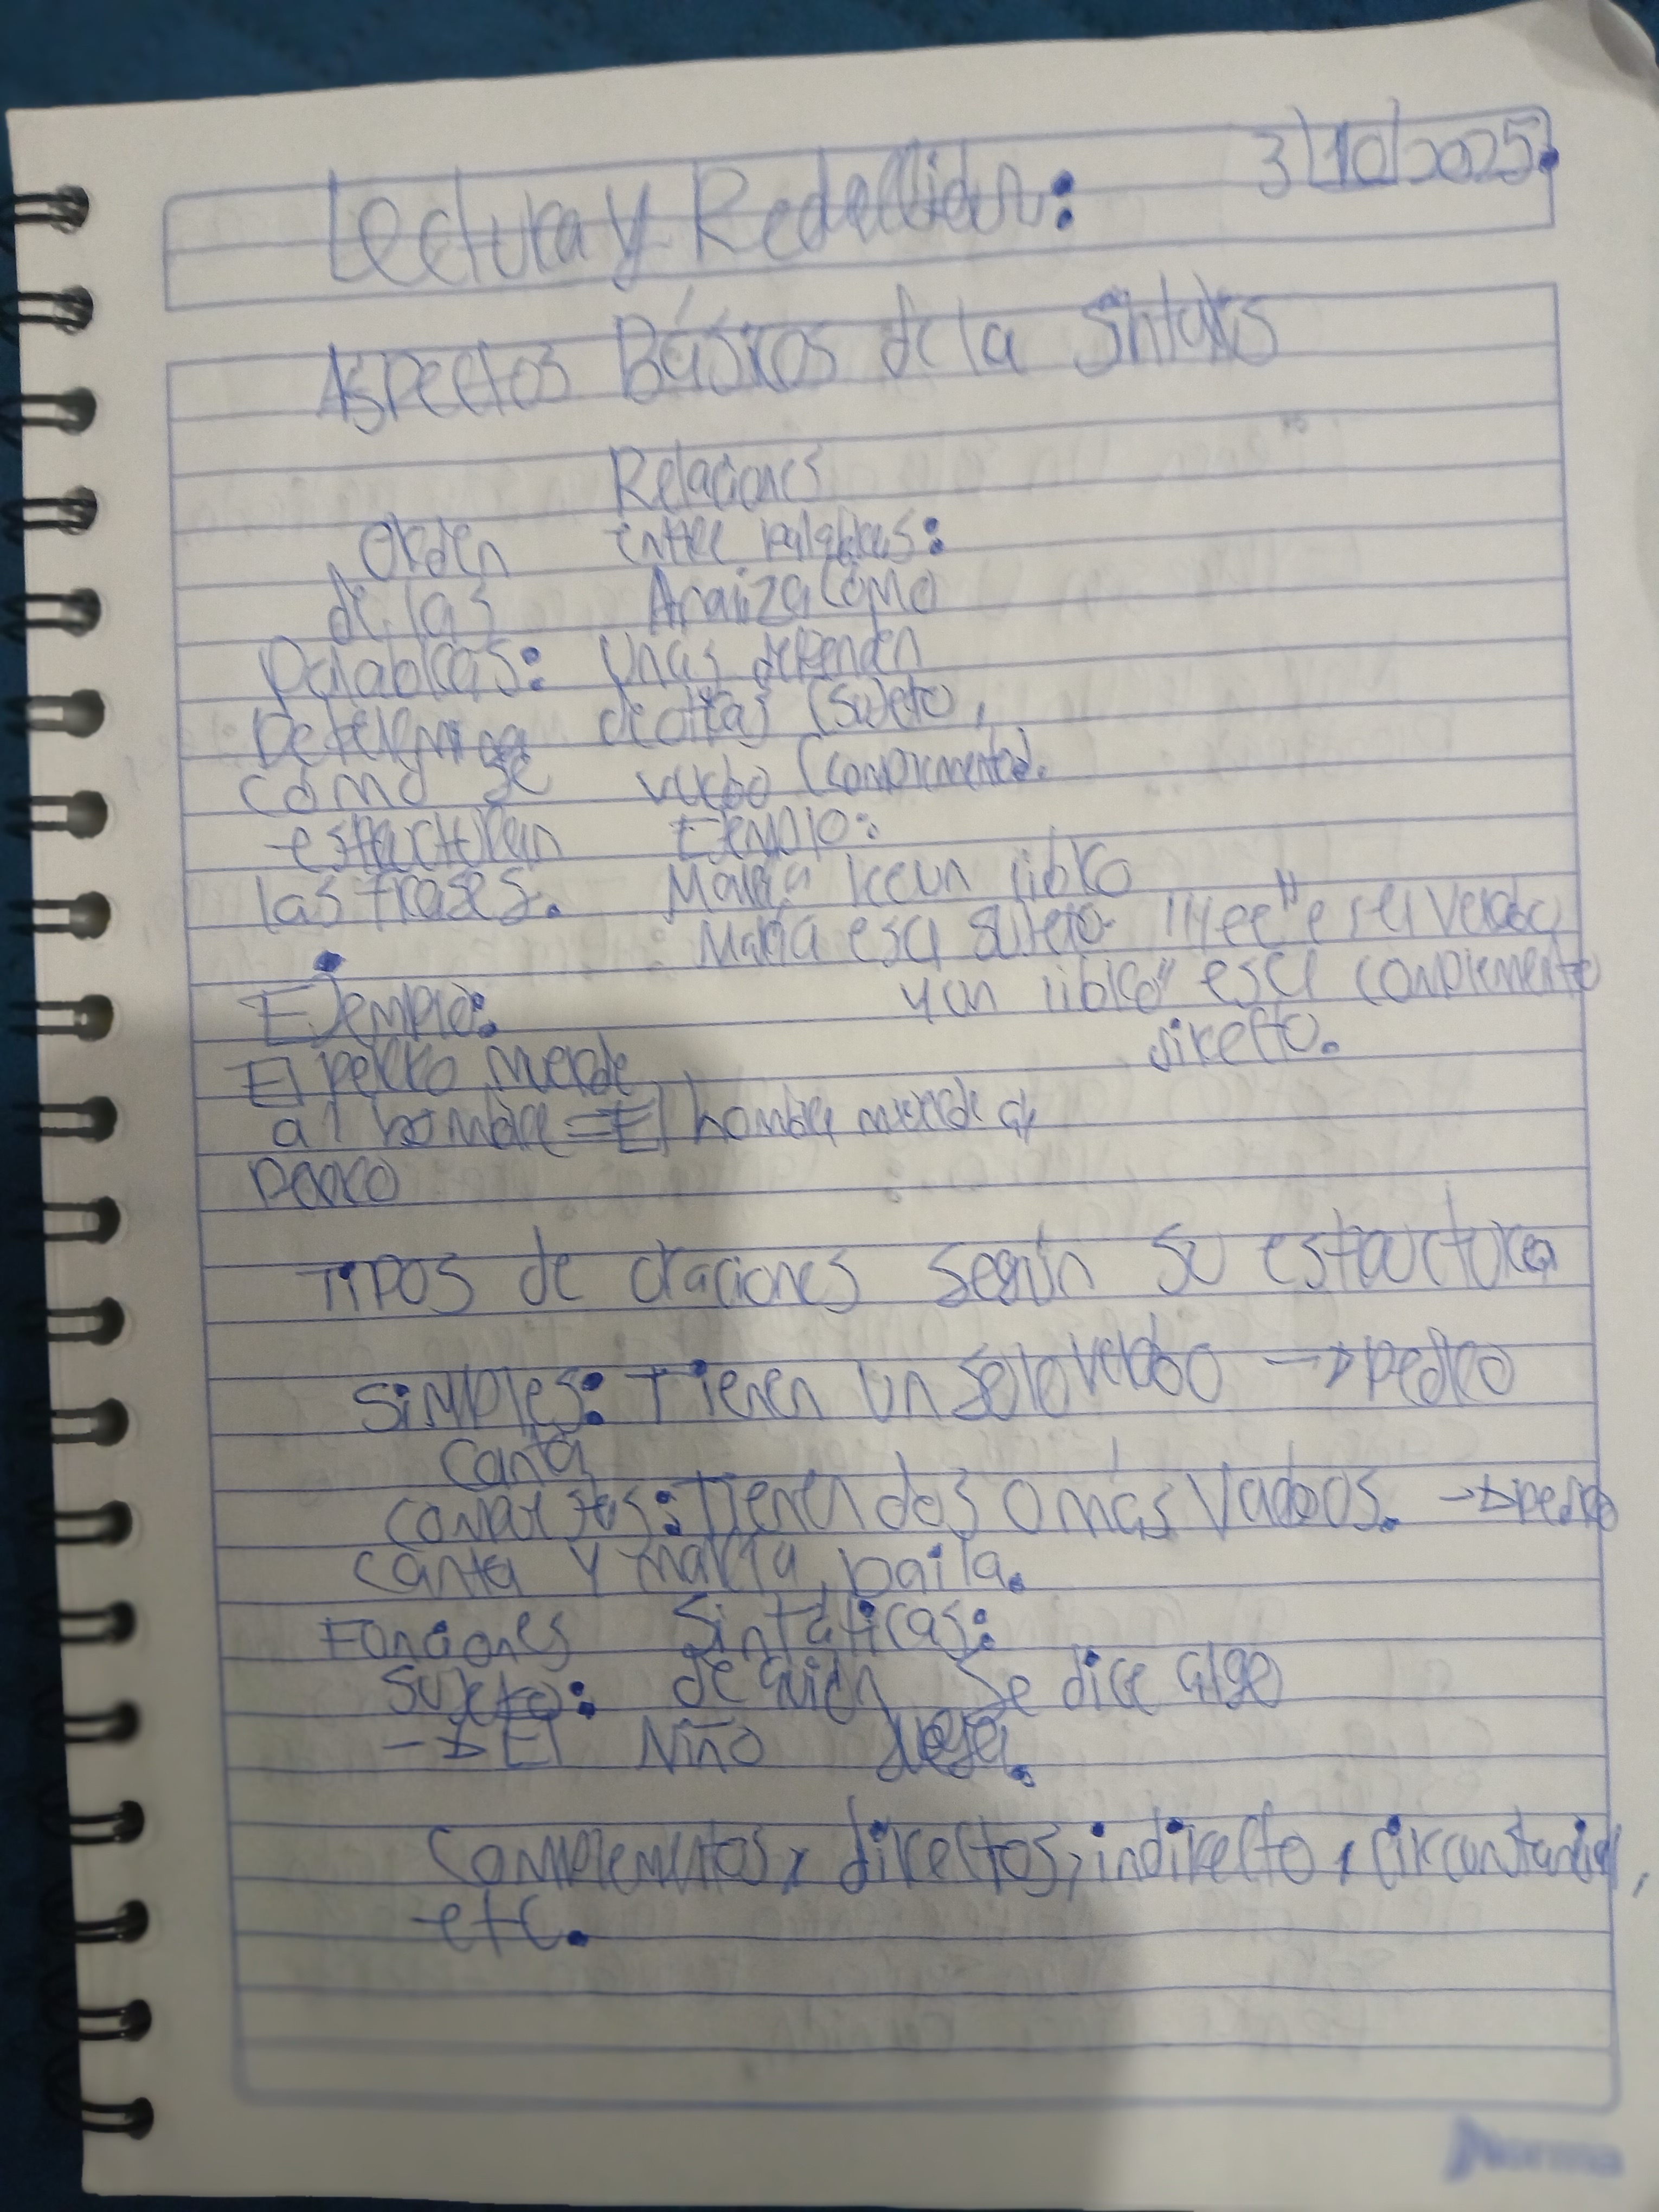 3/10/2025.
Lectura y Redacción:
Aspectos Básicos de la Sintaxis
Relaciones
entre palabras:
Analiza cómo
Unas dependen
de otras (sujeto,
verbo (complemento).
Ejemplo:
María lee un libro
: María es el sujeto. "lee" es el verbo
y un libro" es el complemento
directo.
Orden
de las
palabras:
Determina
cómo se
estructuran
las frases.
Ejemplo:
El perro muerde
al hombre = El hombre muerde al
perro
Tipos de oraciones según su estructura
Simples: Tienen un solo verbo → Pedro
canta
compuestas: Tienen dos o más verbos. → Pedro
canta y maría, baila.
Funciones Sintáticas:
Sujeto: de quién se dice algo
→ El Niño juega.
Complementos, directos, indirecto, circunstancial,
etc.
Norma